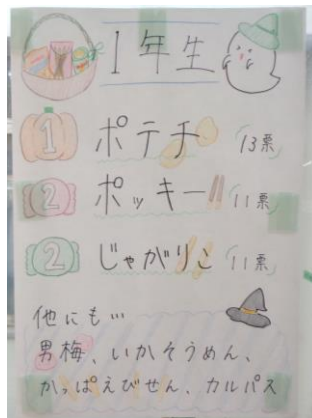 1年生
1 ポテチ 13票
2 ポッキー 11票
2 じゃがりこ 11票
他にも…
男梅、いかそうめん、
かっぱえびせん、カルパス